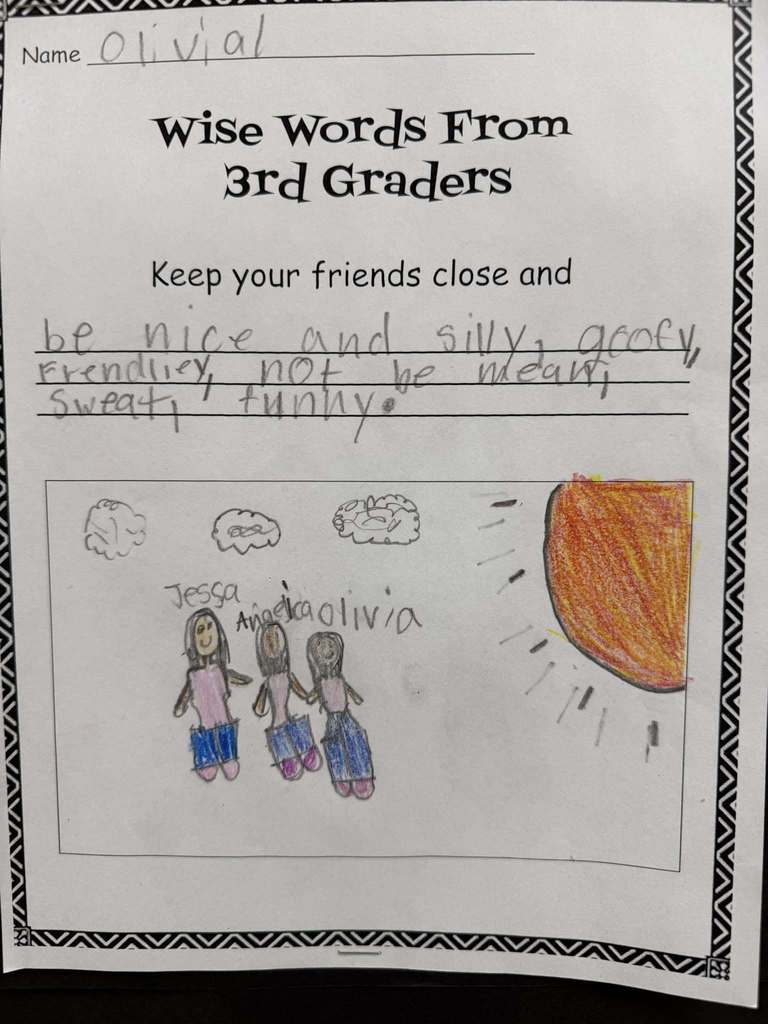 Name Olivial
Wise Words From
3rd Graders
Keep your friends close and
be nice and silly, goofy,
Frendliey, not be mean,
sweat, funny.
Jessa
Angelica Olivia